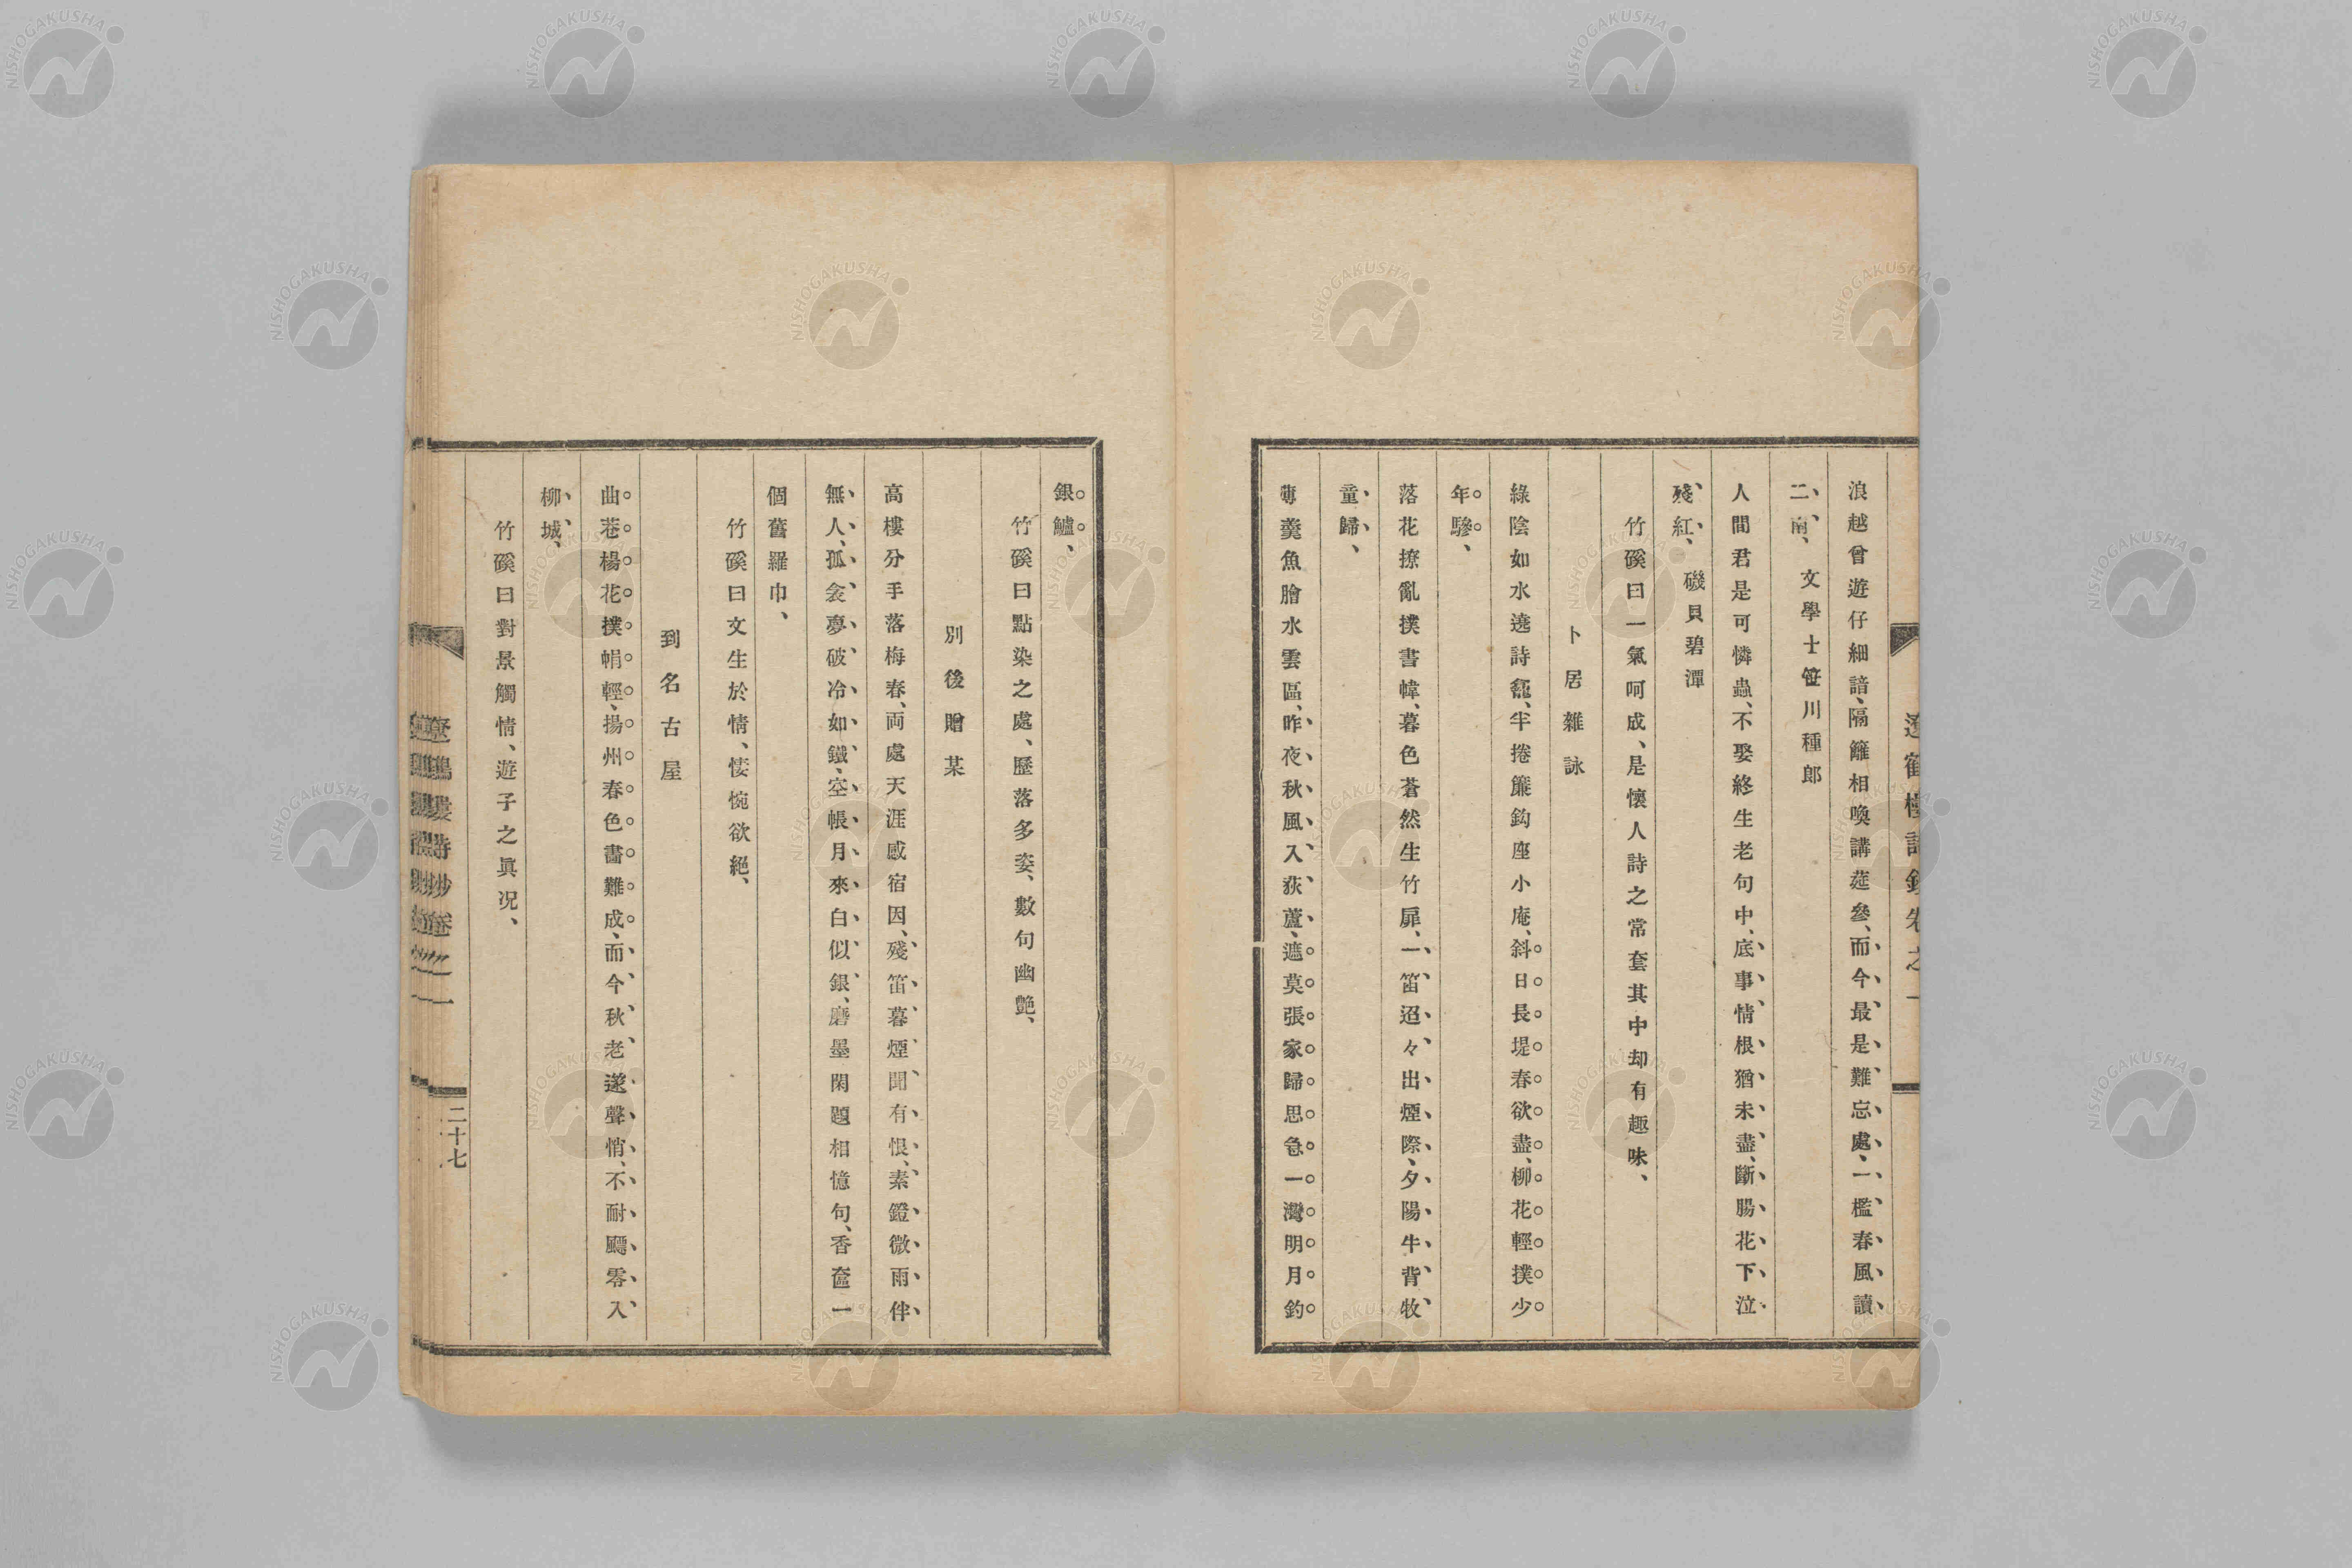 浪越曾遊仔細諳、隔籬相喚講莚參、而今最是難忘處、一檻春風讀
二南、 文學士笹川種郎
人間君是可憐蟲、不娶終生老句中、底事情根猶未盡、斷腸花下泣
殘紅、 磯貝碧潭
竹磎曰一氣呵成、是懷人詩之常套其中却有趣味、
卜居雜詠
綠陰如水遶詩龕、半捲簾鈎座小庵、斜日長堤春欲盡、柳花輕撲少
年驂、
落花撩亂撲書幃、暮色蒼然生竹扉、一笛迢々出煙際、夕陽牛背牧
童歸、
薄羹魚膾水雲區、昨夜秋風入荻蘆、遮莫張家歸思急一灣明月釣
銀鱸、
竹磎曰點染之處、歷落多姿、數句幽艷、
別後贈某
高樓分手落梅春、両處天涯感宿因、殘笛暮煙聞有恨、素鐙微雨伴
無人、孤衾夢破冷如鐵、空帳月來白似銀、磨墨閑題相憶句、香奩一
個舊羅巾、
竹磎曰文生於情、悽惋欲絕、
到名古屋
曲巷楊花撲帽輕、揚州春色畵難成、而今秋老邃聲悄、不耐飄零入
柳城、
竹磎曰對景觸情、遊子之眞况、
二十七